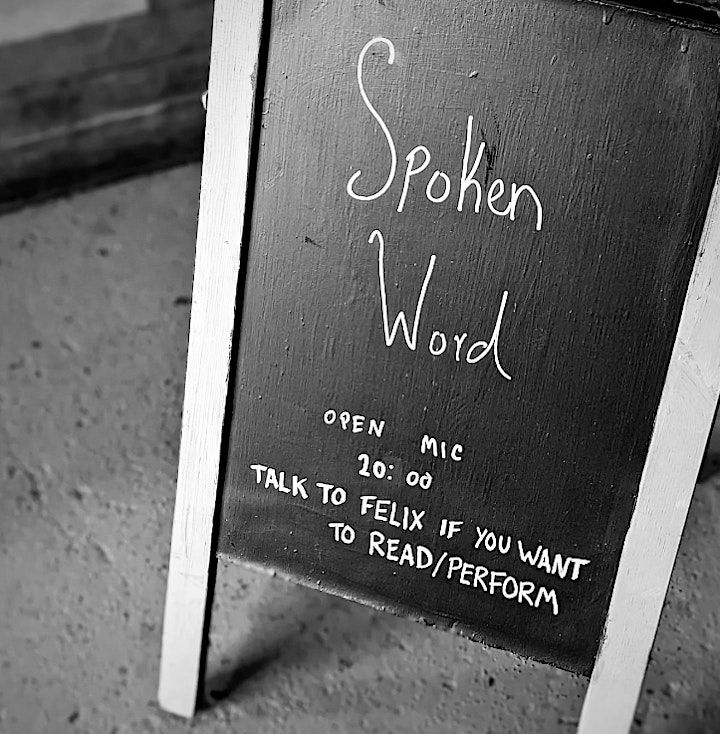 Spoken
Word
OPEN MIC
20:00
TALK TO FELIX IF YOU WANT
TO READ/PERFORM